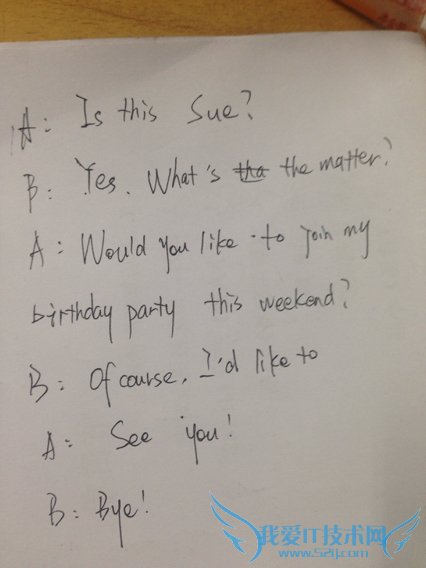 A: Is this Sue?
B: Yes. What's tha the matter?
A: Would you like to join my
birthday party this weekend?
B: Of course, I'd like to
A: See you!
B: Bye!
我爱IT技术网
www.52ij.com